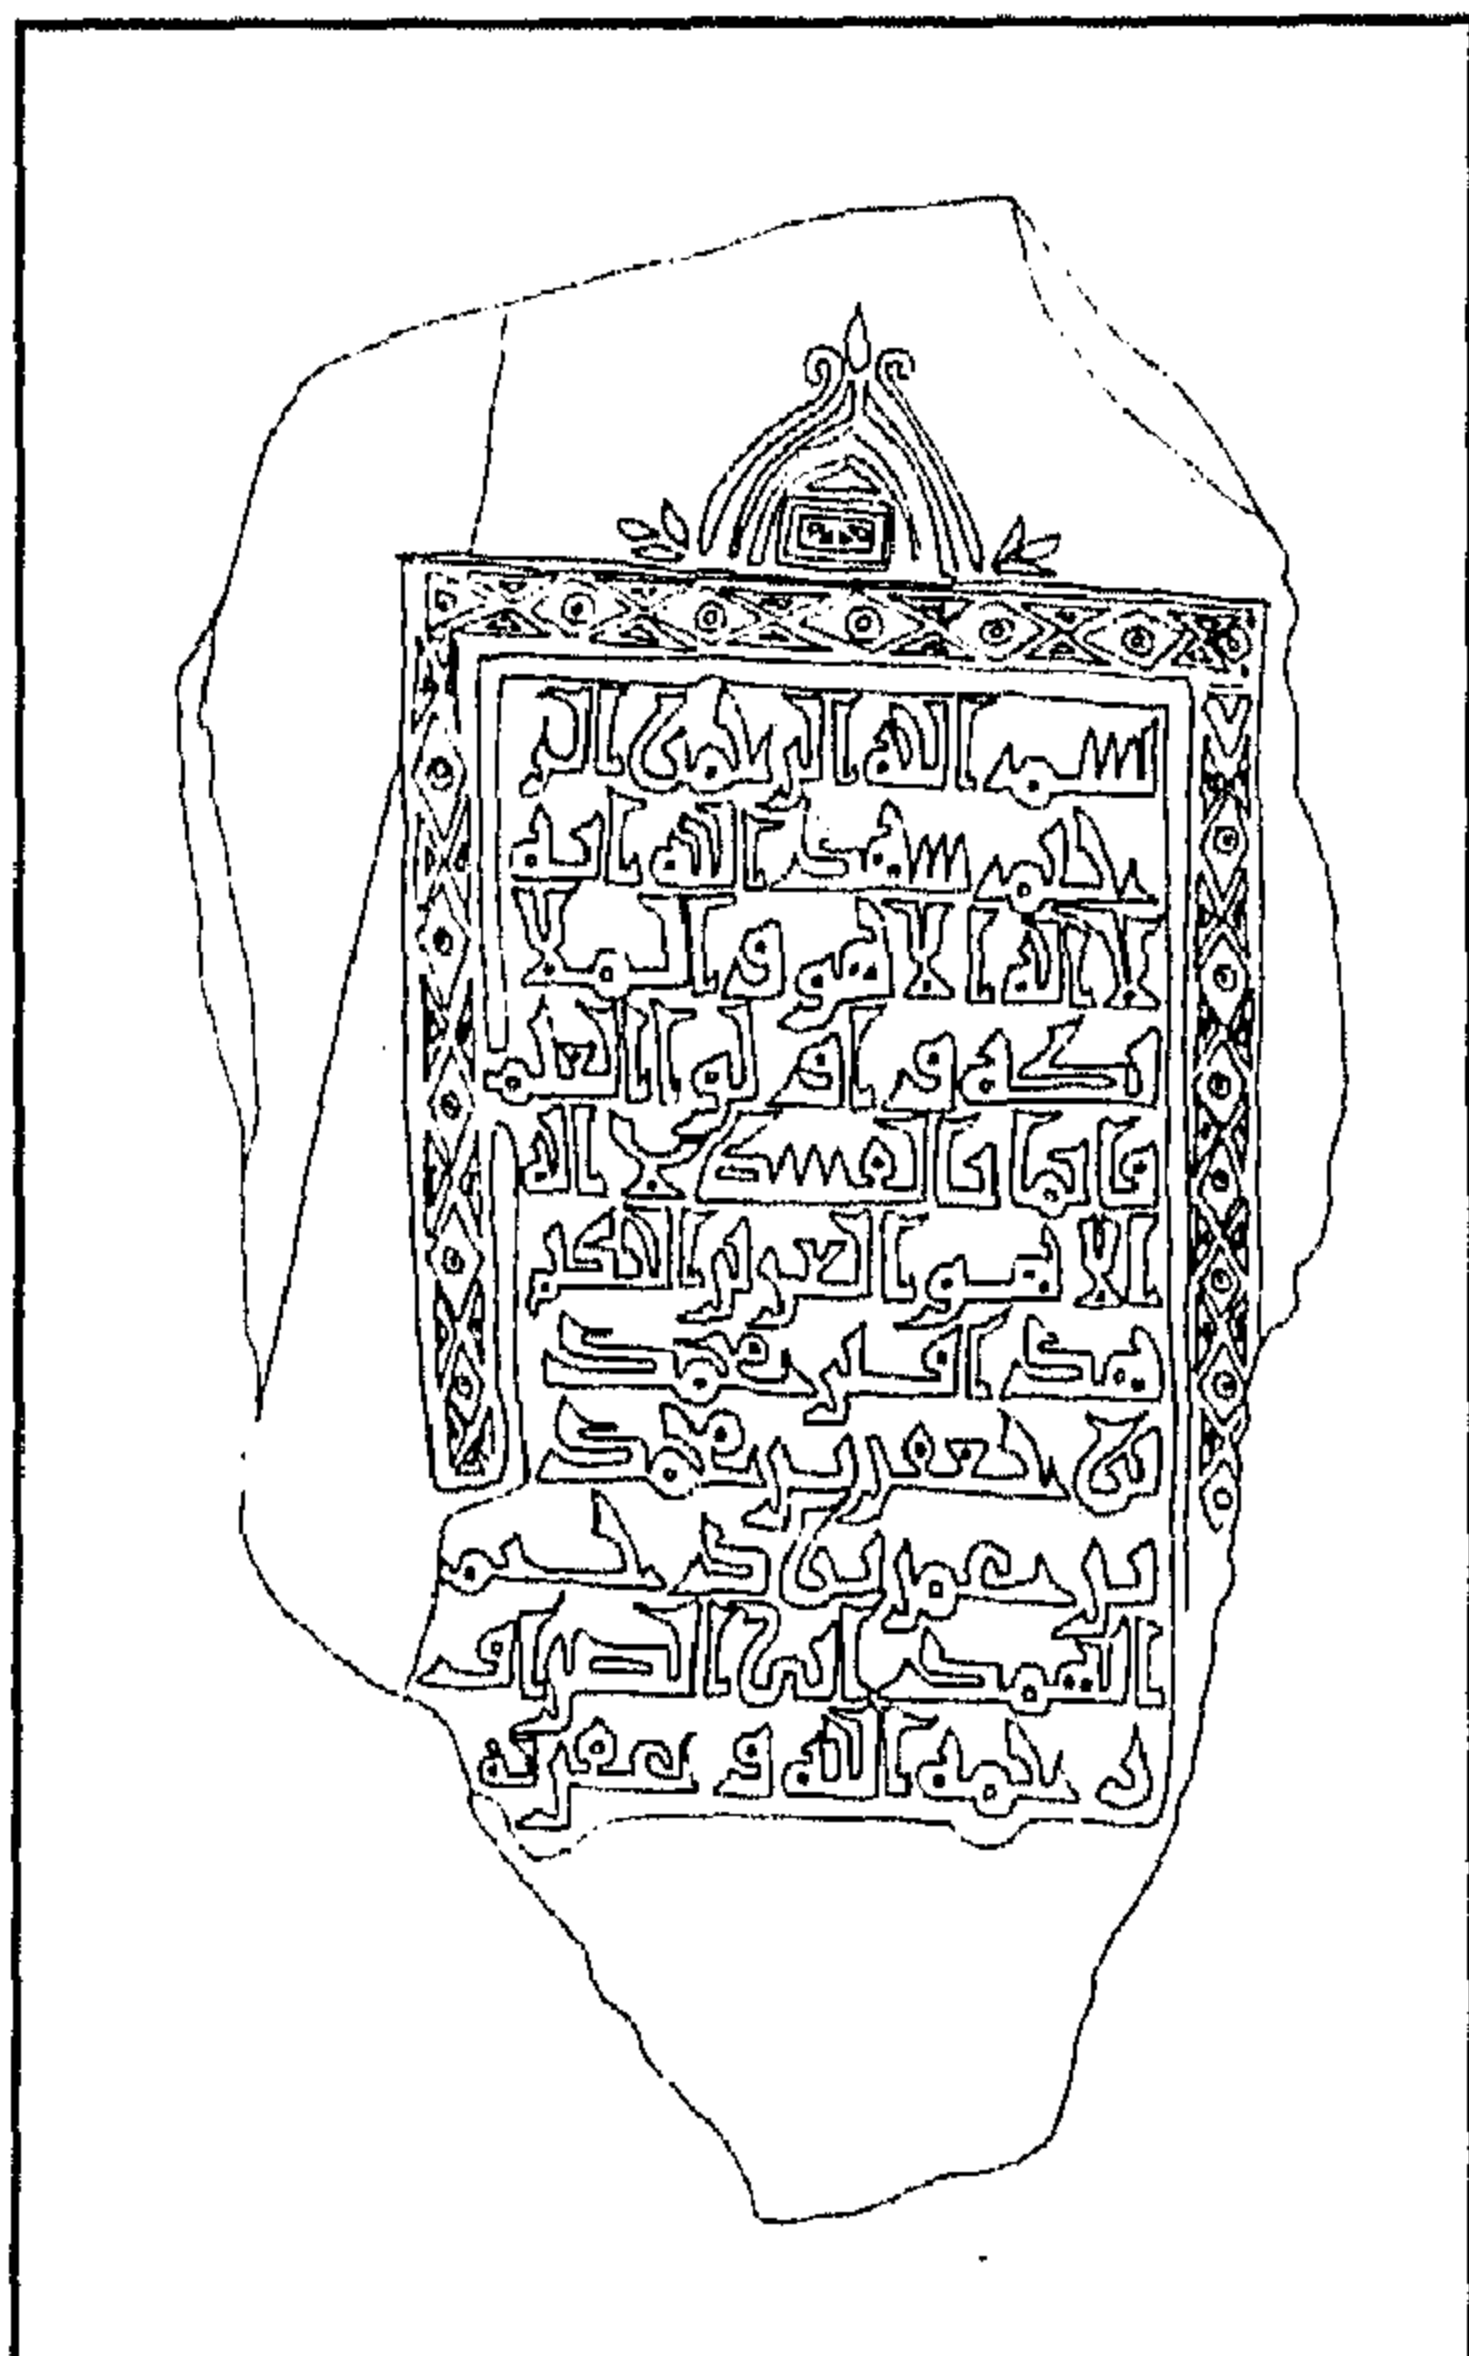 بسم الله الرحمن الر
حيم شهد الله انه
لا اله الا هو و الملا
ئكة و اولوا العلم
قائما بالقسط لا اله
الا هو العزيز الحكيم
هذا قبر محمد
بن جعفر بن محمد
بن عمر بن
رحمة الله و مغفرته